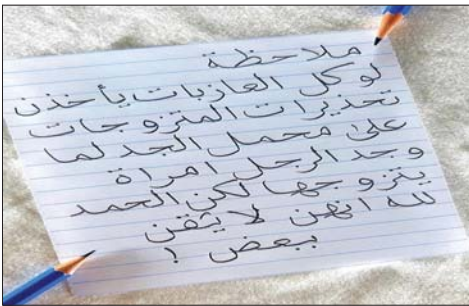 ملاحظة
لو كل العازبات يأخذن
تحذيرات المتزوجات
على محمل الجد لما
وجد الرجل امراة
يتزوجها لكن الحمد
لله انهن لا يثقن
ببعض !